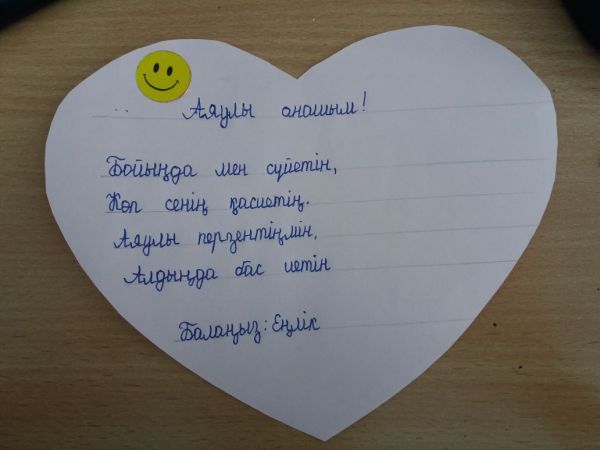 Аяулы анашым!
Бойыңда мен сүйетін,
Көп сенің қасиетің.
Аяулы перзентіңмін,
Алдыңда бас иетін
Балаңыз: Еңлік